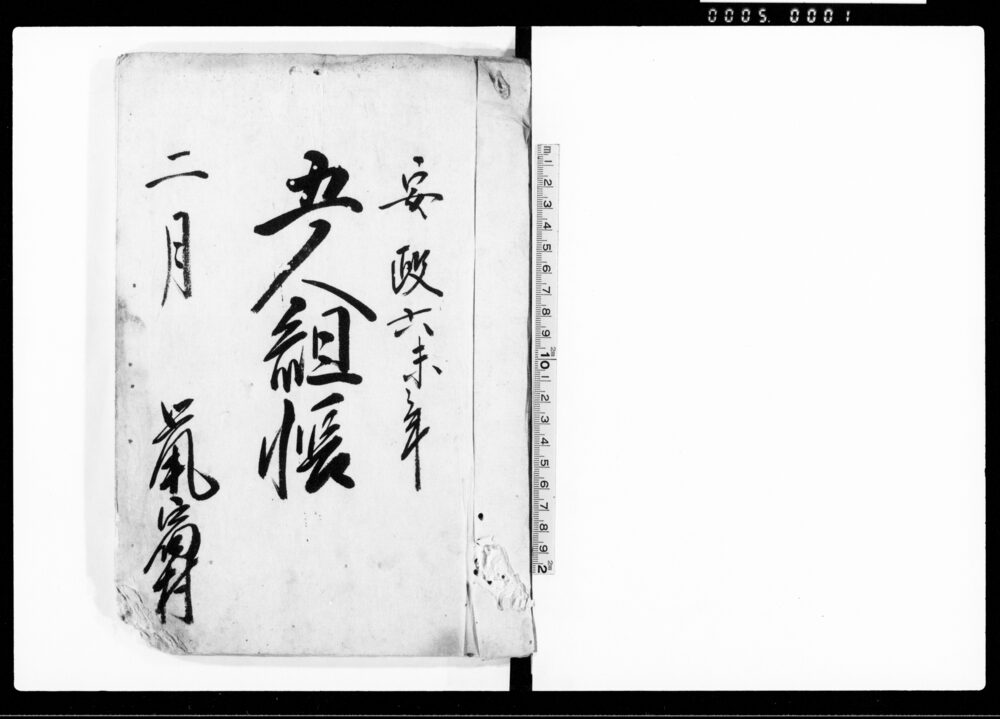 0005. 0001
安政六未年
五人組帳
二月
村
m 1 2 3 4 5 6 7 8 9 10 1 2 3 4 5 6 7 8 9 2